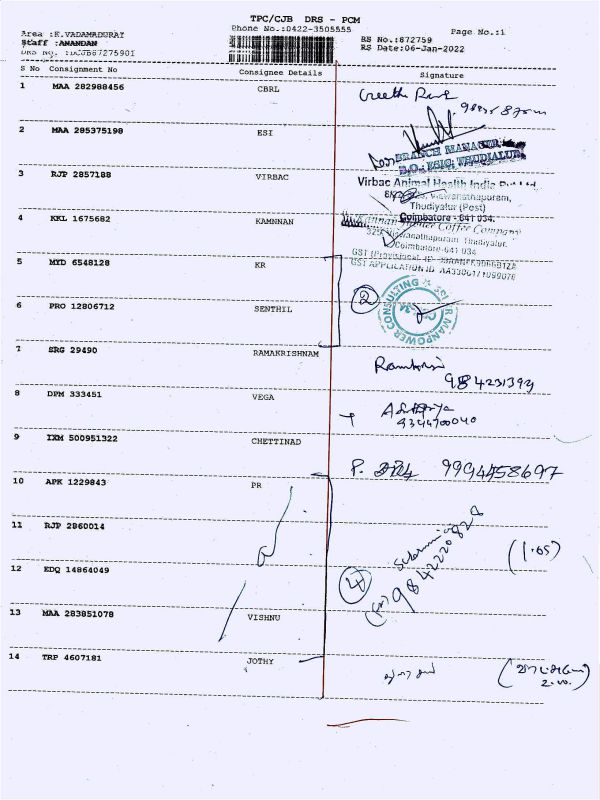 TPC/CJB DRS - PCM
Phone No.:0422-3505555
Page No.:1
Area :K.VADAMADURAI
Staff :ANANDAN
DRS No. :DCJB87275901
RS No.:872759
RS Date:06-Jan-2022
S No Consignment No Consignee Details Signature
1 MAA 282988456 CBRL
2 MAA 285375198 ESI
BRANCH MANAGER
B.O., ESIC, THUDIALUR
3 RJP 2857188 VIRBAC
Virbac Animal Health India
Viswanathapuram,
Thudiyalur (Post)
Coimbatore - 641 034.
4 KKL 1675682 KAMNNAN
Coffee Company
Viswanathapuram Thudiyalur.
Coimbatore-641 034
5 MYD 6548128 KR
GST APPLICATION ID
6 PRO 12806712 SENTHIL
2
MANPOWER CONSULTING
7 SRG 29490 RAMAKRISHNAM
984231393
8 DPM 333451 VEGA
9344700040
9 IXM 500951322 CHETTINAD
P. 9994458697
10 APK 1229843 PR
11 RJP 2860014
(1.05)
12 EDQ 14864049
4
9842220828
13 MAA 283851078 VISHNU
14 TRP 4607181 JOTHY
2.00.